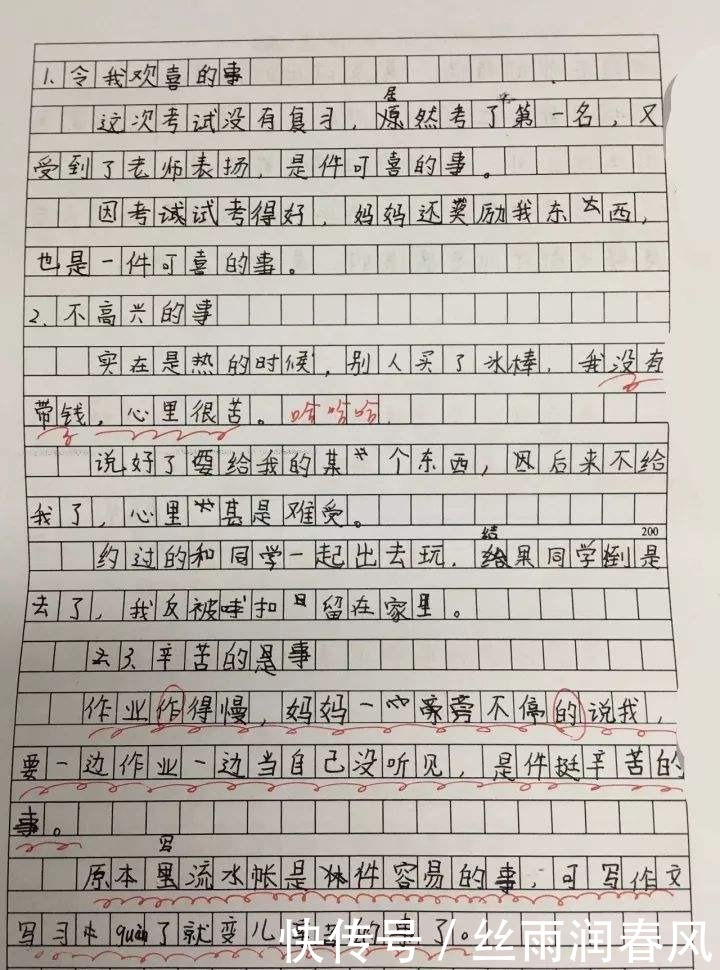 1.令我欢喜的事
这次考试没有复习，居然考了第一名，又
受到了老师表扬，是件可喜的事。
因考试试考得好，妈妈还奖励我东西，
也是一件可喜的事。
2.不高兴的事
实在是热的时候，别人买了冰棒，我没有
带钱，心里很苦。哈哈哈
说好了要给我的某个东西，因后来不给
我了，心里甚是难受。
200
约过的和同学一起出去玩，结果同学倒是
去了，我反被扣留在家里。
3、辛苦的事
作业作得慢，妈妈一旁不停的说我，
要一边作业一边当自己没听见，是件挺辛苦的
事。
原本写流水帐是件容易的事，可写作文
写习guàn了就变儿辛苦的事了。
快传号/丝雨润春风